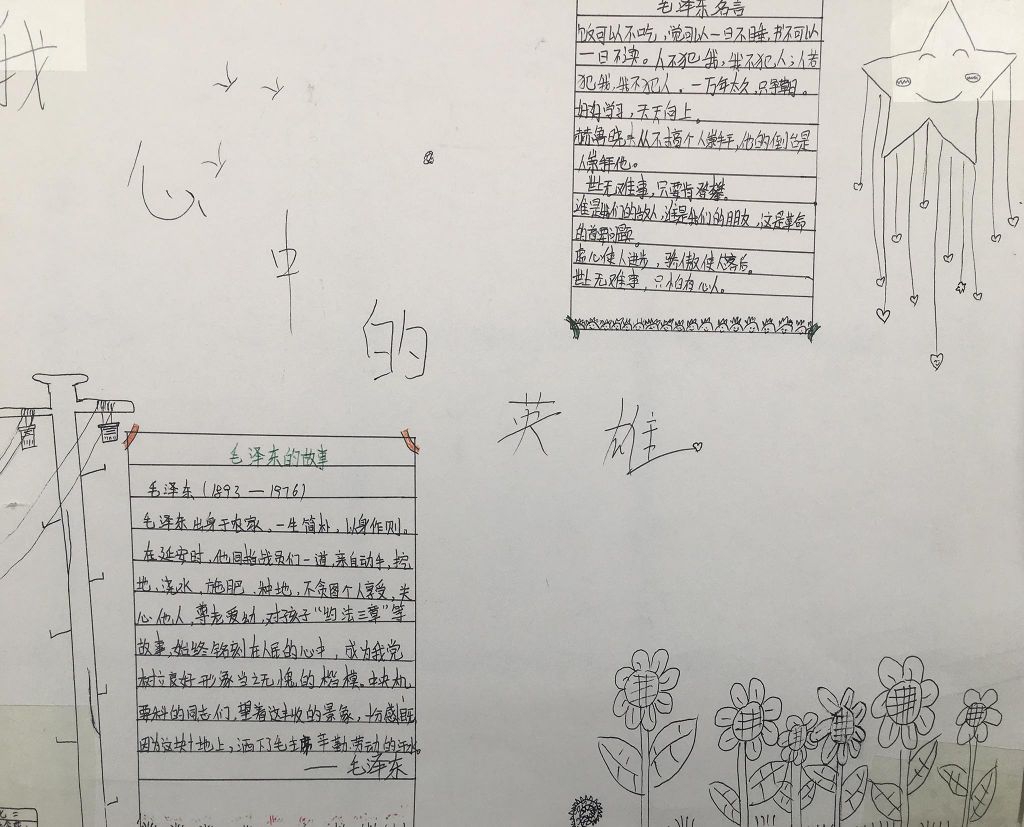 我心中的英雄
毛泽东名言
饭可以不吃，觉可以一日不睡，书不可以
一日不读。人不犯我，我不犯人；人若
犯我，我不犯人。一万年太久，只争朝。
好好学习，天天向上。
赫鲁晓夫从不搞个人崇拜，他的倒台是
人崇拜他。
世上无难事，只要肯登攀。
谁是我们的敌人，谁是我们的朋友，这是革命
的首要问题。
虚心使人进步，骄傲使人落后。
世上无难事，只怕有心人。
毛泽东的故事
毛泽东（1893—1976）
毛泽东出身于农家，一生简朴，以身作则。
在延安时，他同指战员们一道，亲自动手，挖
地、浇水、施肥、种地，不贪图个人享受，关
心他人，尊老爱幼，对孩子“约法三章”等
故事，始终铭刻在人民的心中，成为我党
树立良好形象当之无愧的楷模。中央机
要科的同志们，望着这丰收的景象，十分感慨
因为这块土地上，洒下了毛主席辛勤劳动的汗水。
——毛泽东